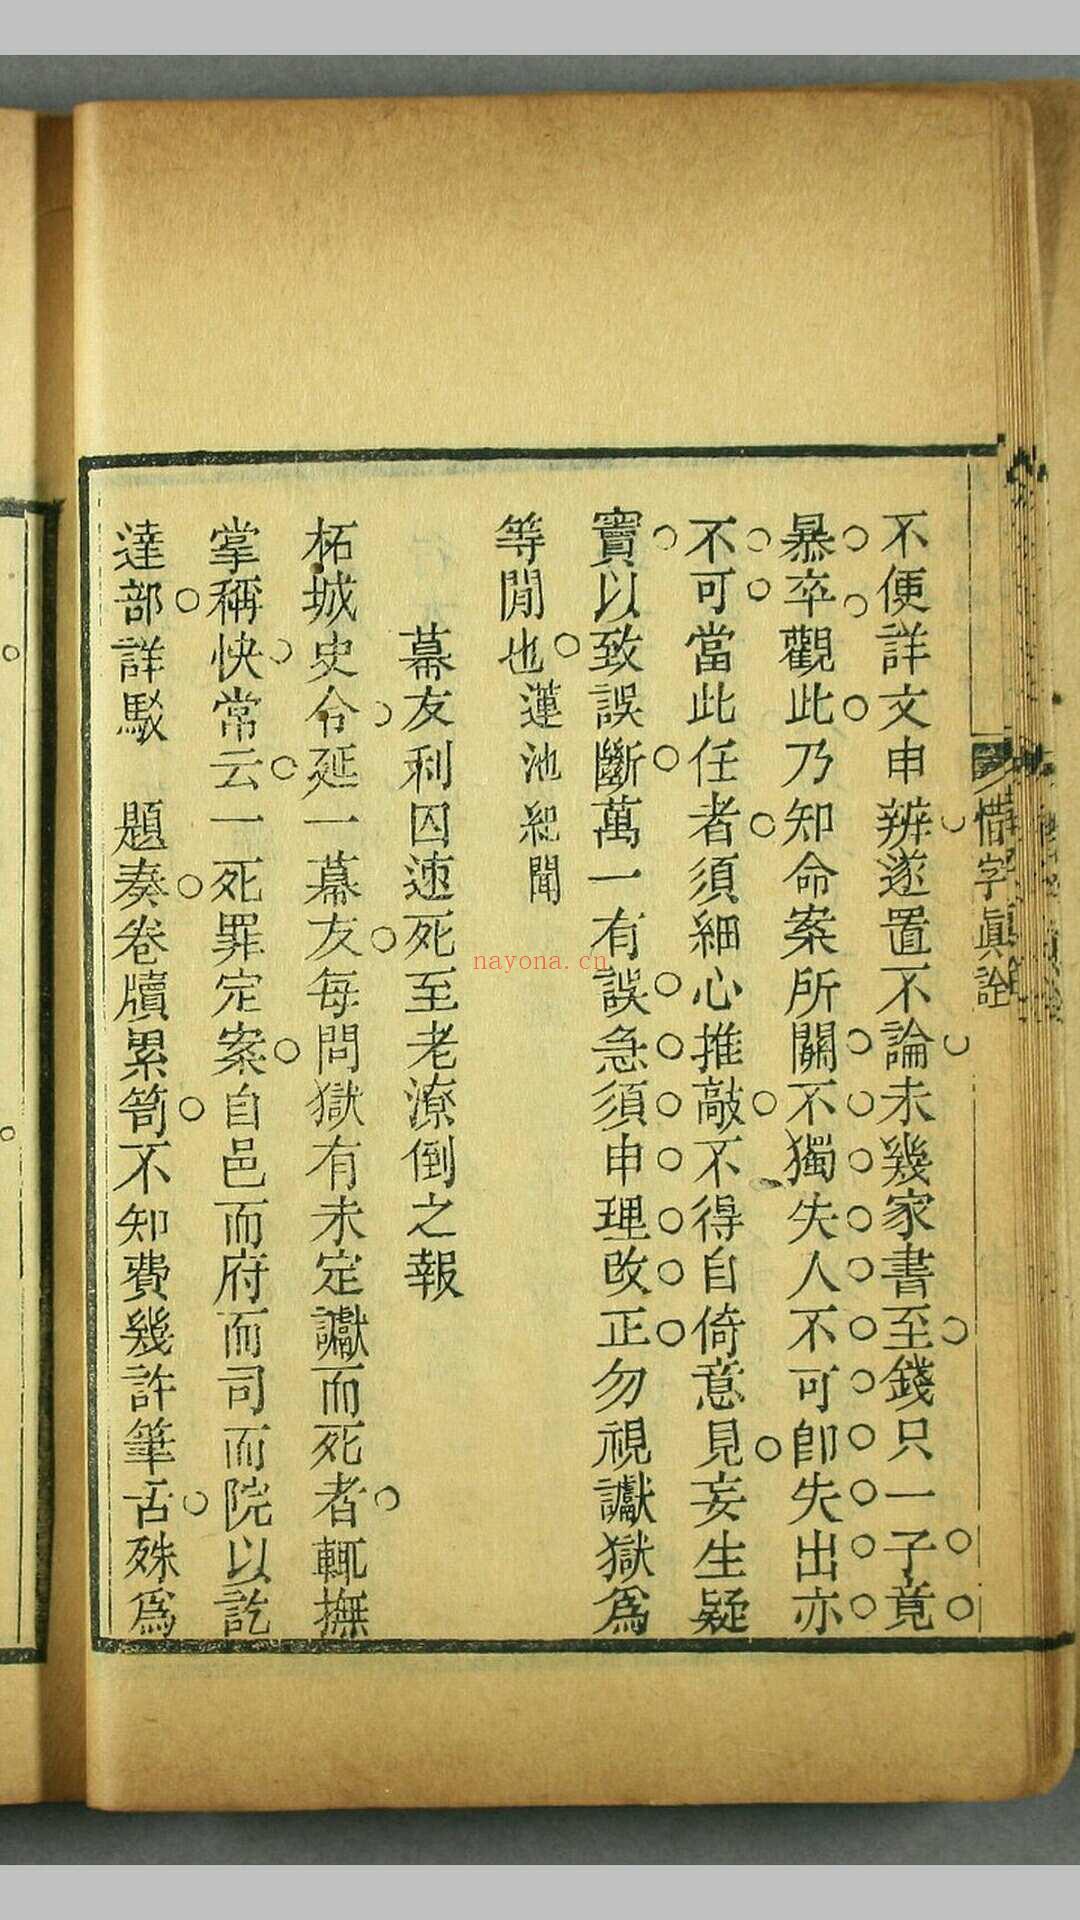 惜字眞詮
不便詳文申辨遂置不論未幾家書至錢只一子竟
暴卒觀此乃知命案所關不獨失人不可卽失出亦
不可當此任者須細心推敲不得自倚意見妄生疑
竇以致誤斷萬一有誤急須申理改正勿視讞獄爲
等閒也蓮池紀聞
幕友利囚速死至老潦倒之報
柘城史令延一幕友每問獄有未定讞而死者輒撫
掌稱快常云一死罪定案自邑而府而司而院以訖
達部詳駁 題奏卷牘累笥不知費幾許筆舌殊爲
nayona.cn